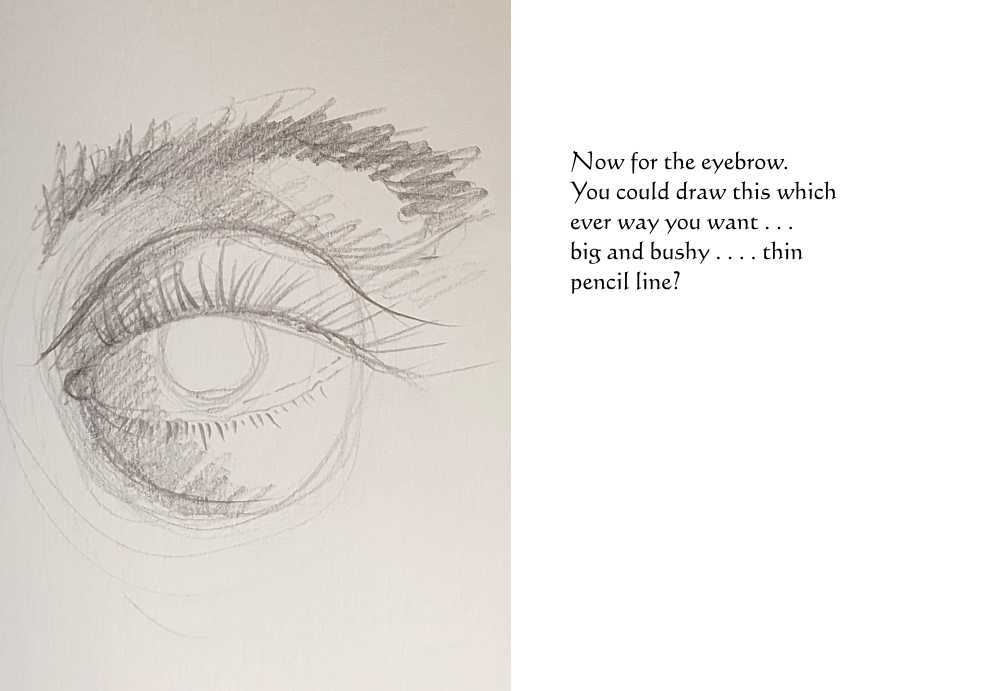 Now for the eyebrow.
You could draw this which
ever way you want . . .
big and bushy . . . . thin
pencil line?